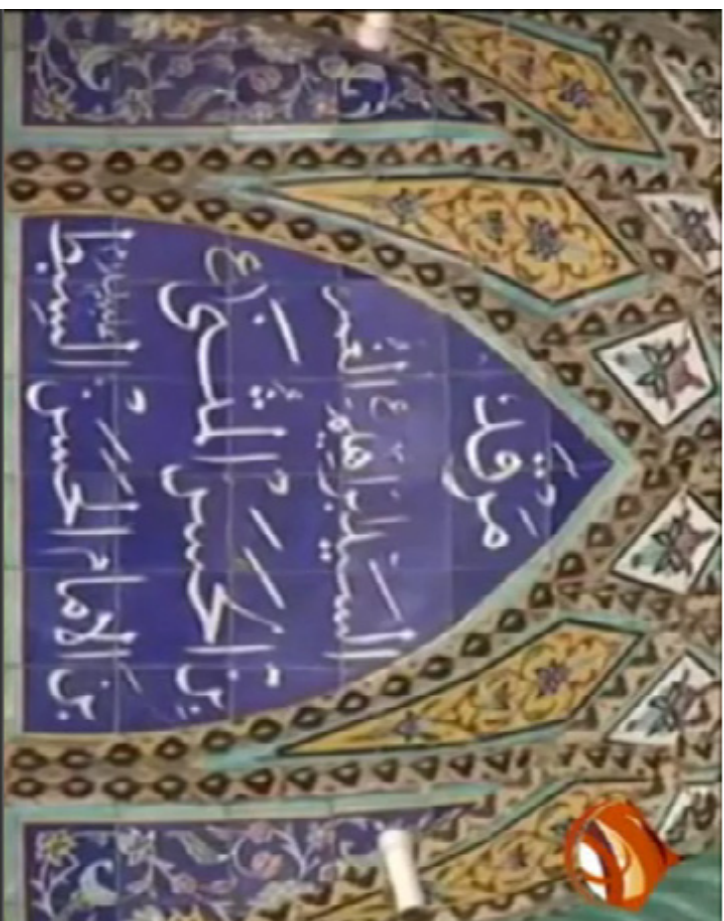 مَرقَد
السَيّد إبراهيم الغمر
بن الحَسَن المُثَنى (ع)
بن الامام الحَسَن السِبط عليه السلام